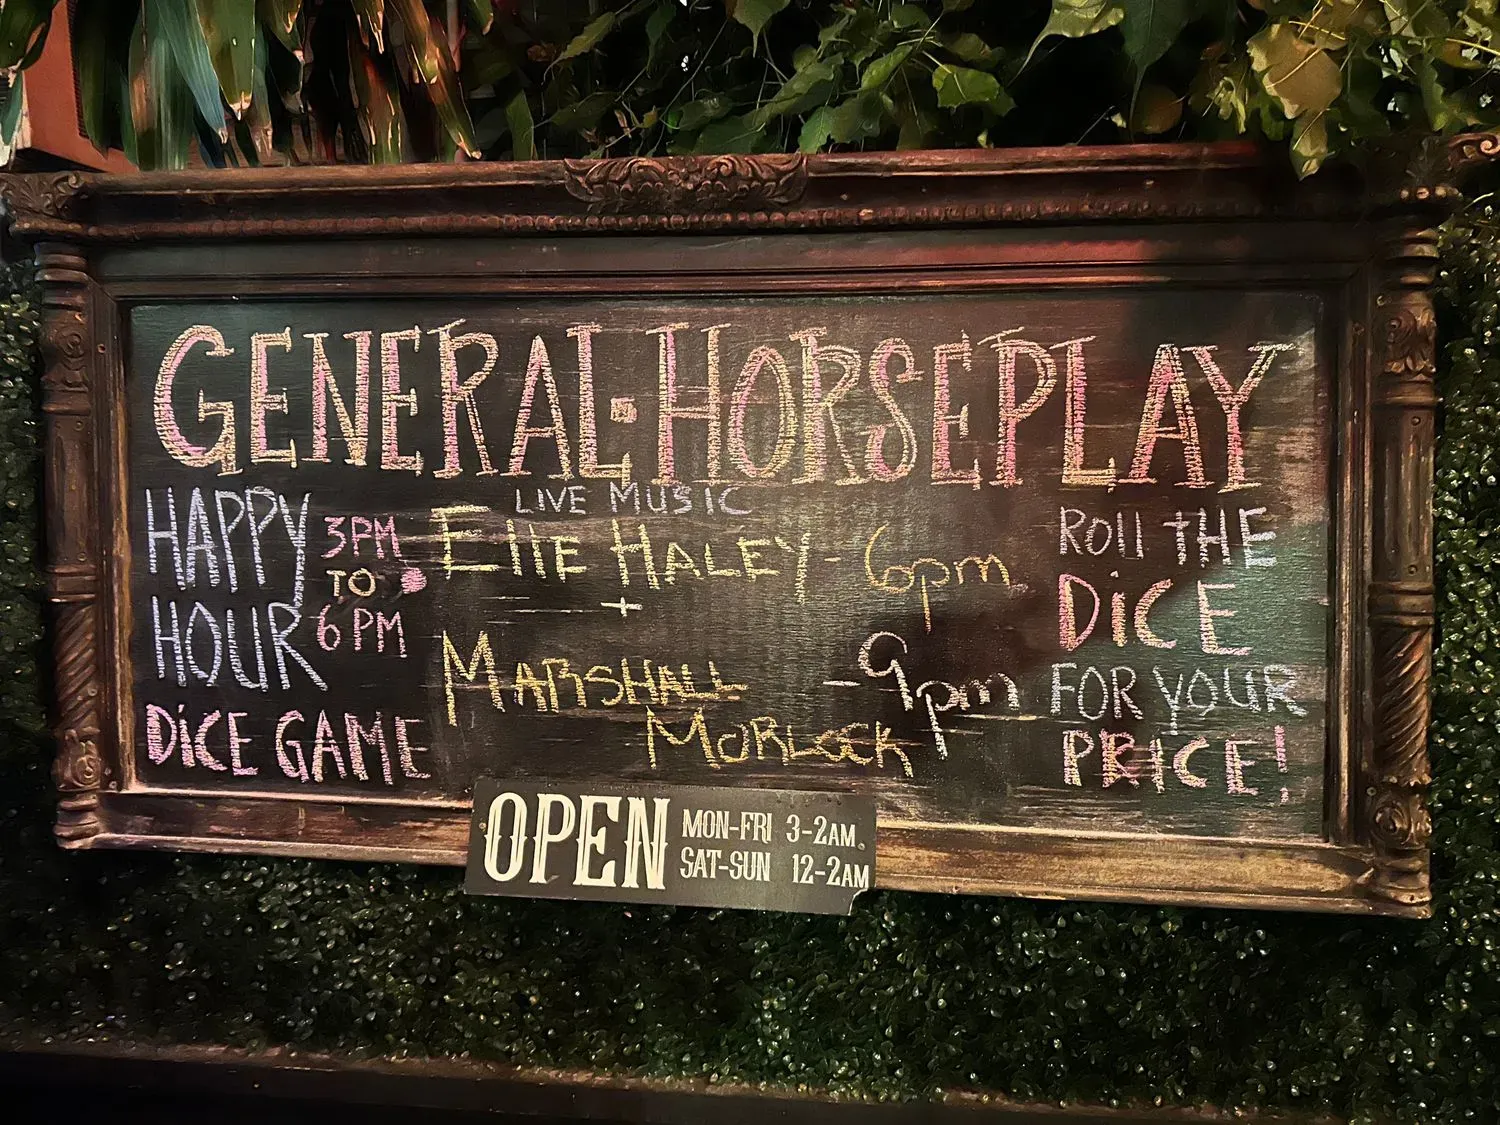 GENERAL·HORSEPLAY
HAPPY
HOUR
3PM
TO
6 PM
DiCE GAME
LIVE MUSIC
EllE HALEY - 6pm
+
MARSHALL
MORLOCK
- 9pm
ROll tHE
DiCE
FOR YOUR
PRICE!
OPEN
MON-FRI 3-2AM
SAT-SUN 12-2AM